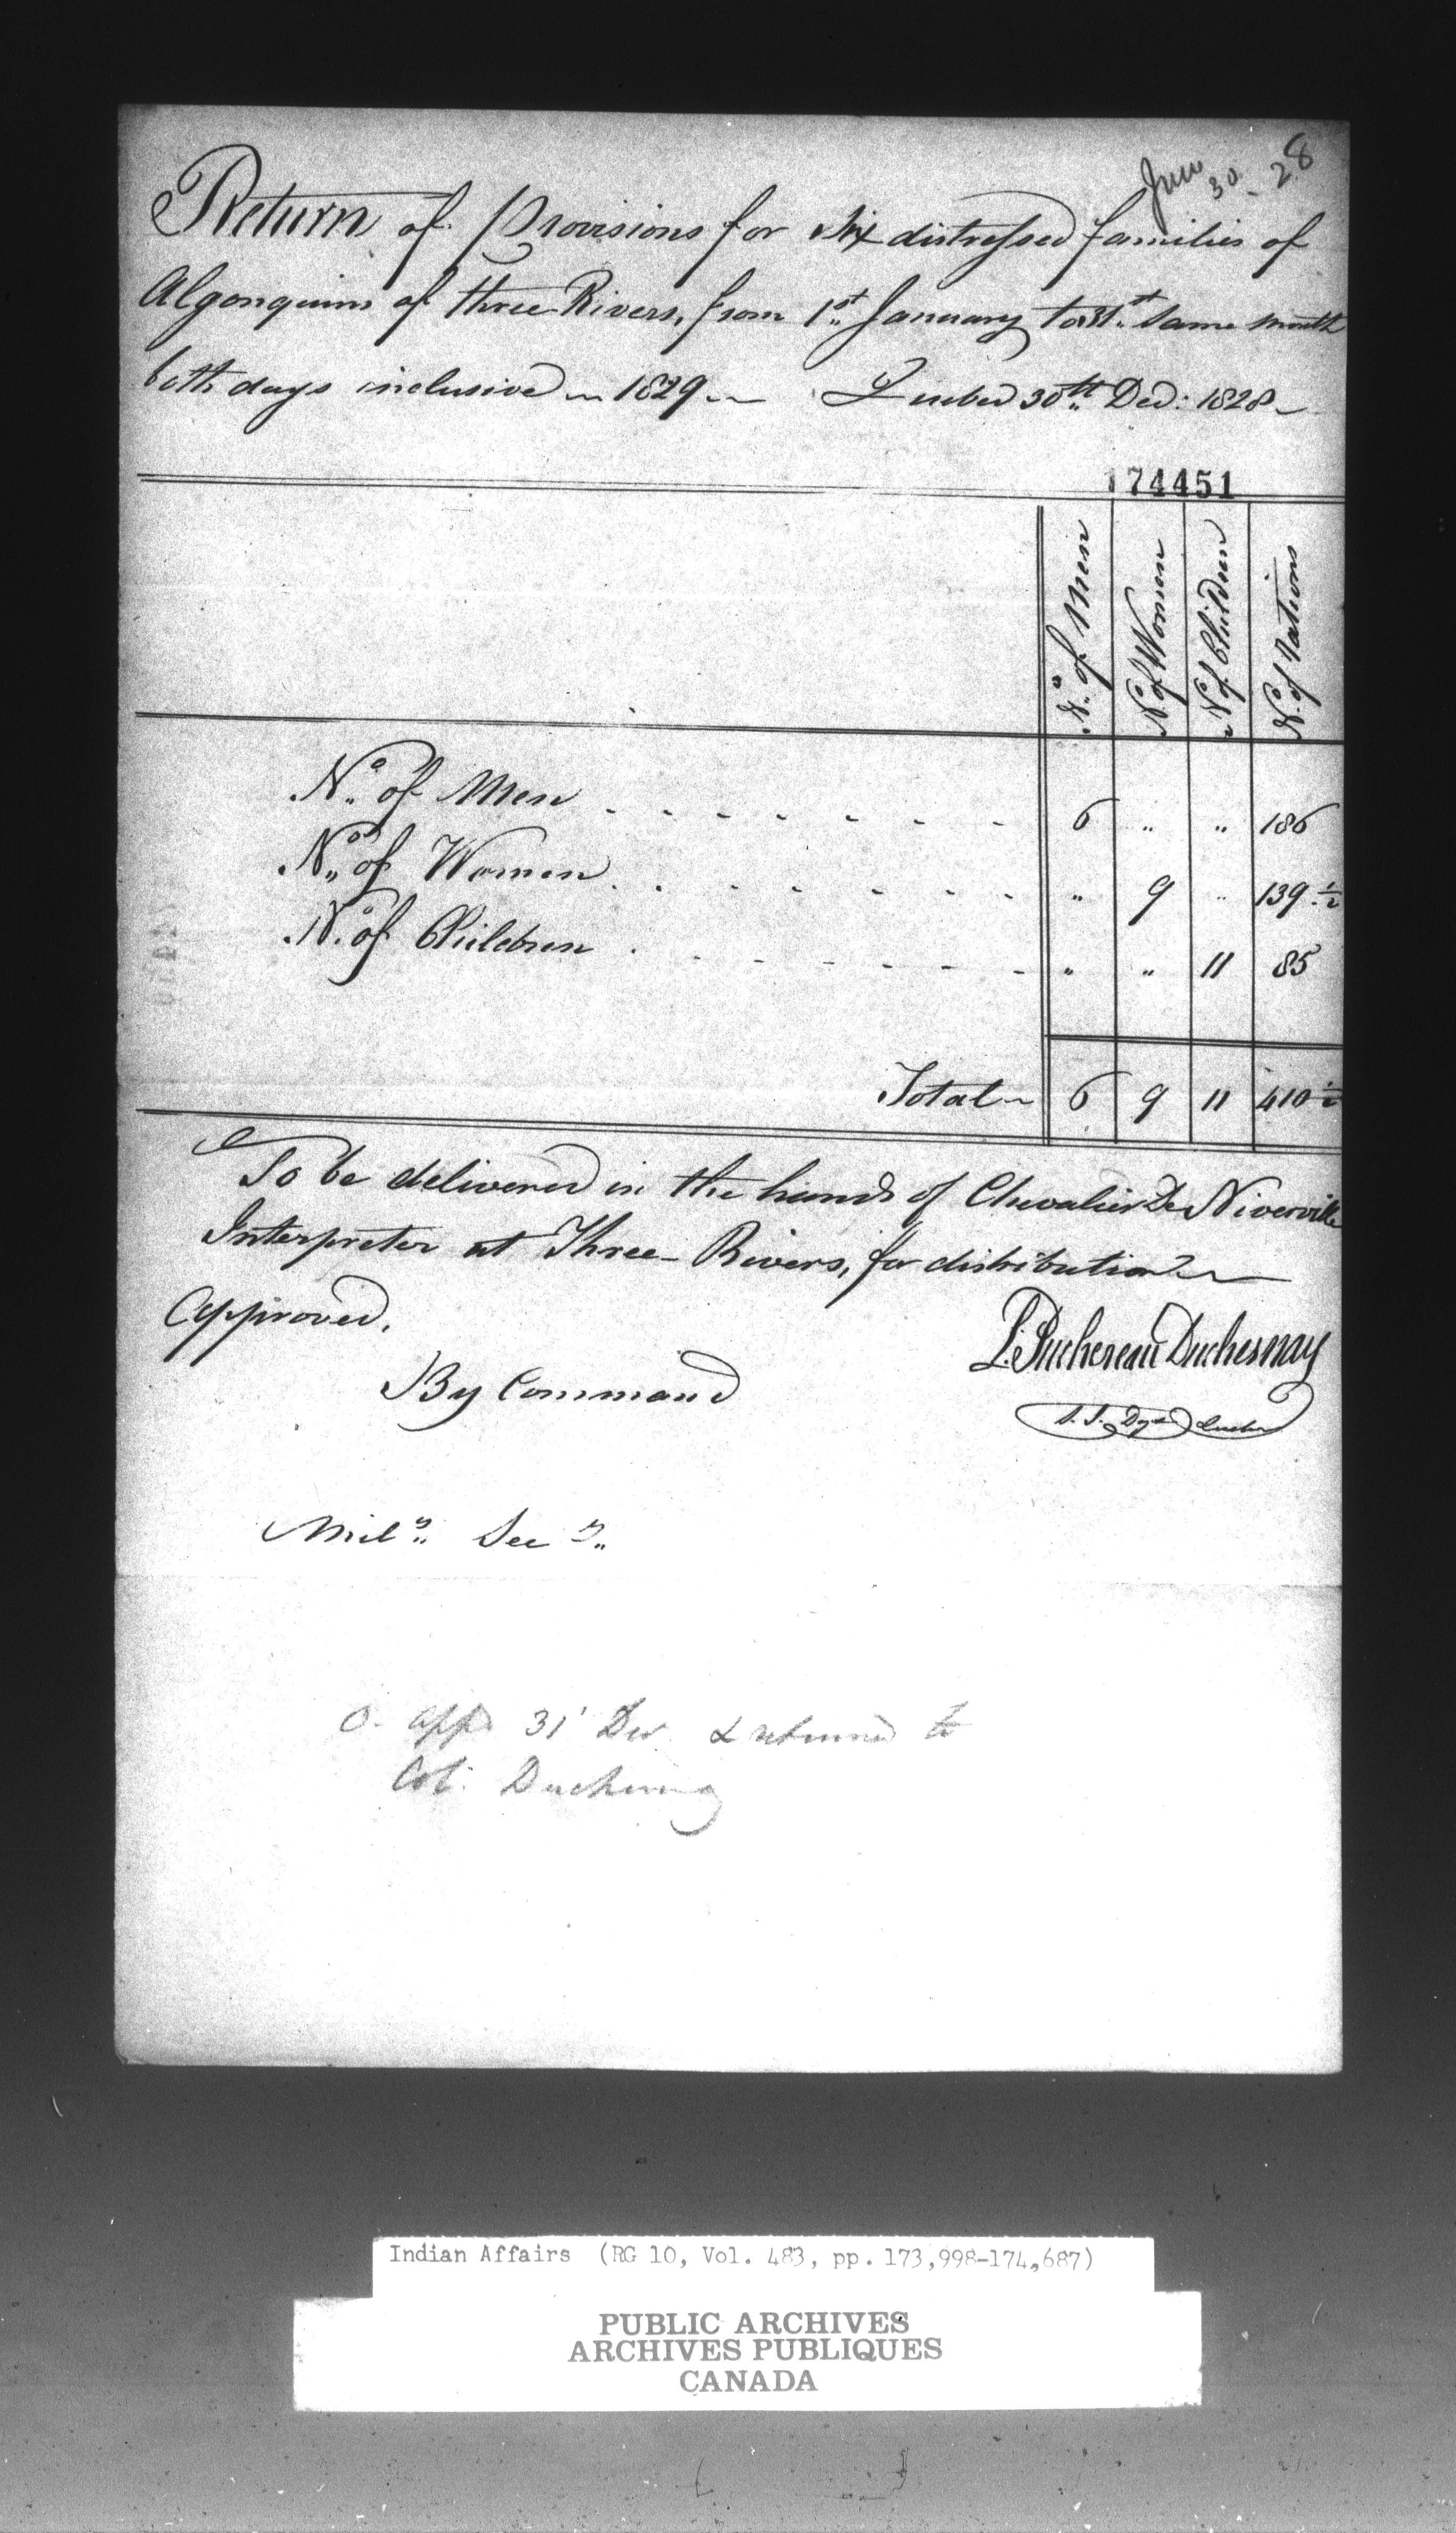 30 - 28
Return of Provisions for Six distressed families of
Algonquins of three Rivers, from 1st January to 31st same month
both days inclusive 1829 Quebec 30th Dec: 1828
174451
No. of Men No of Women No of Children No. of Rations
No. of Men 6 " " 186
No. of Women " 9 " 139 1/2
No. of Children " " 11 85
Total 6 9 11 410 1/2
To be delivered in the hands of Chevalier De Niverville
Interpreter at Three-Rivers, for distribution
Approved.
L: Juchereau Duchesnay
By Command
Quebec
Mily Secy
appd 31 Dec & returned to
Col: Duchesnay
Indian Affairs (RG 10, Vol. 483, pp. 173,998-174,687)
PUBLIC ARCHIVES
ARCHIVES PUBLIQUES
CANADA